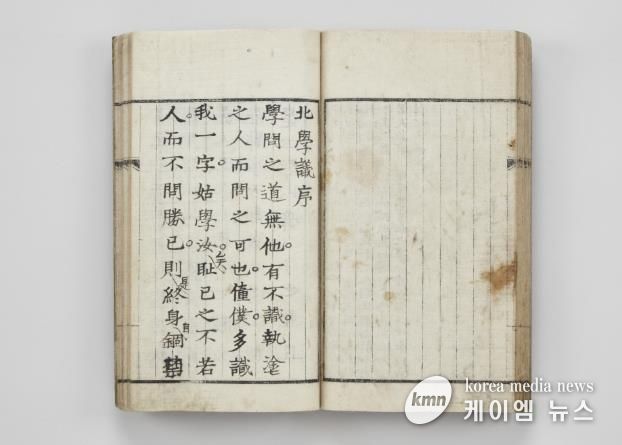 北學議序
學問之道無他。有不識。執塗
之人而問之可也。僮僕。多識
我一字。姑學汝。矣耻己之不若
人。而不問勝己。則是終身自錮
korea media news
kmn 케이엠 뉴스